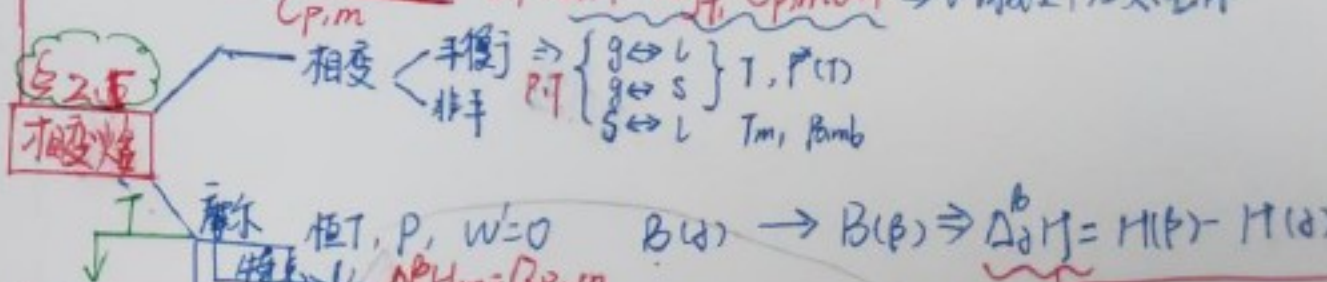 Cp,m
§2.5
相变焓
相变
平衡
非平
P.T
g⇔l
g⇔s
s⇔l
T, P*(T)
Tm, Pamb
T
摩尔
恒T, P, W'=0 B(α) → B(β) ⇒ Δ_α^β H = H(β) - H(α)
特点